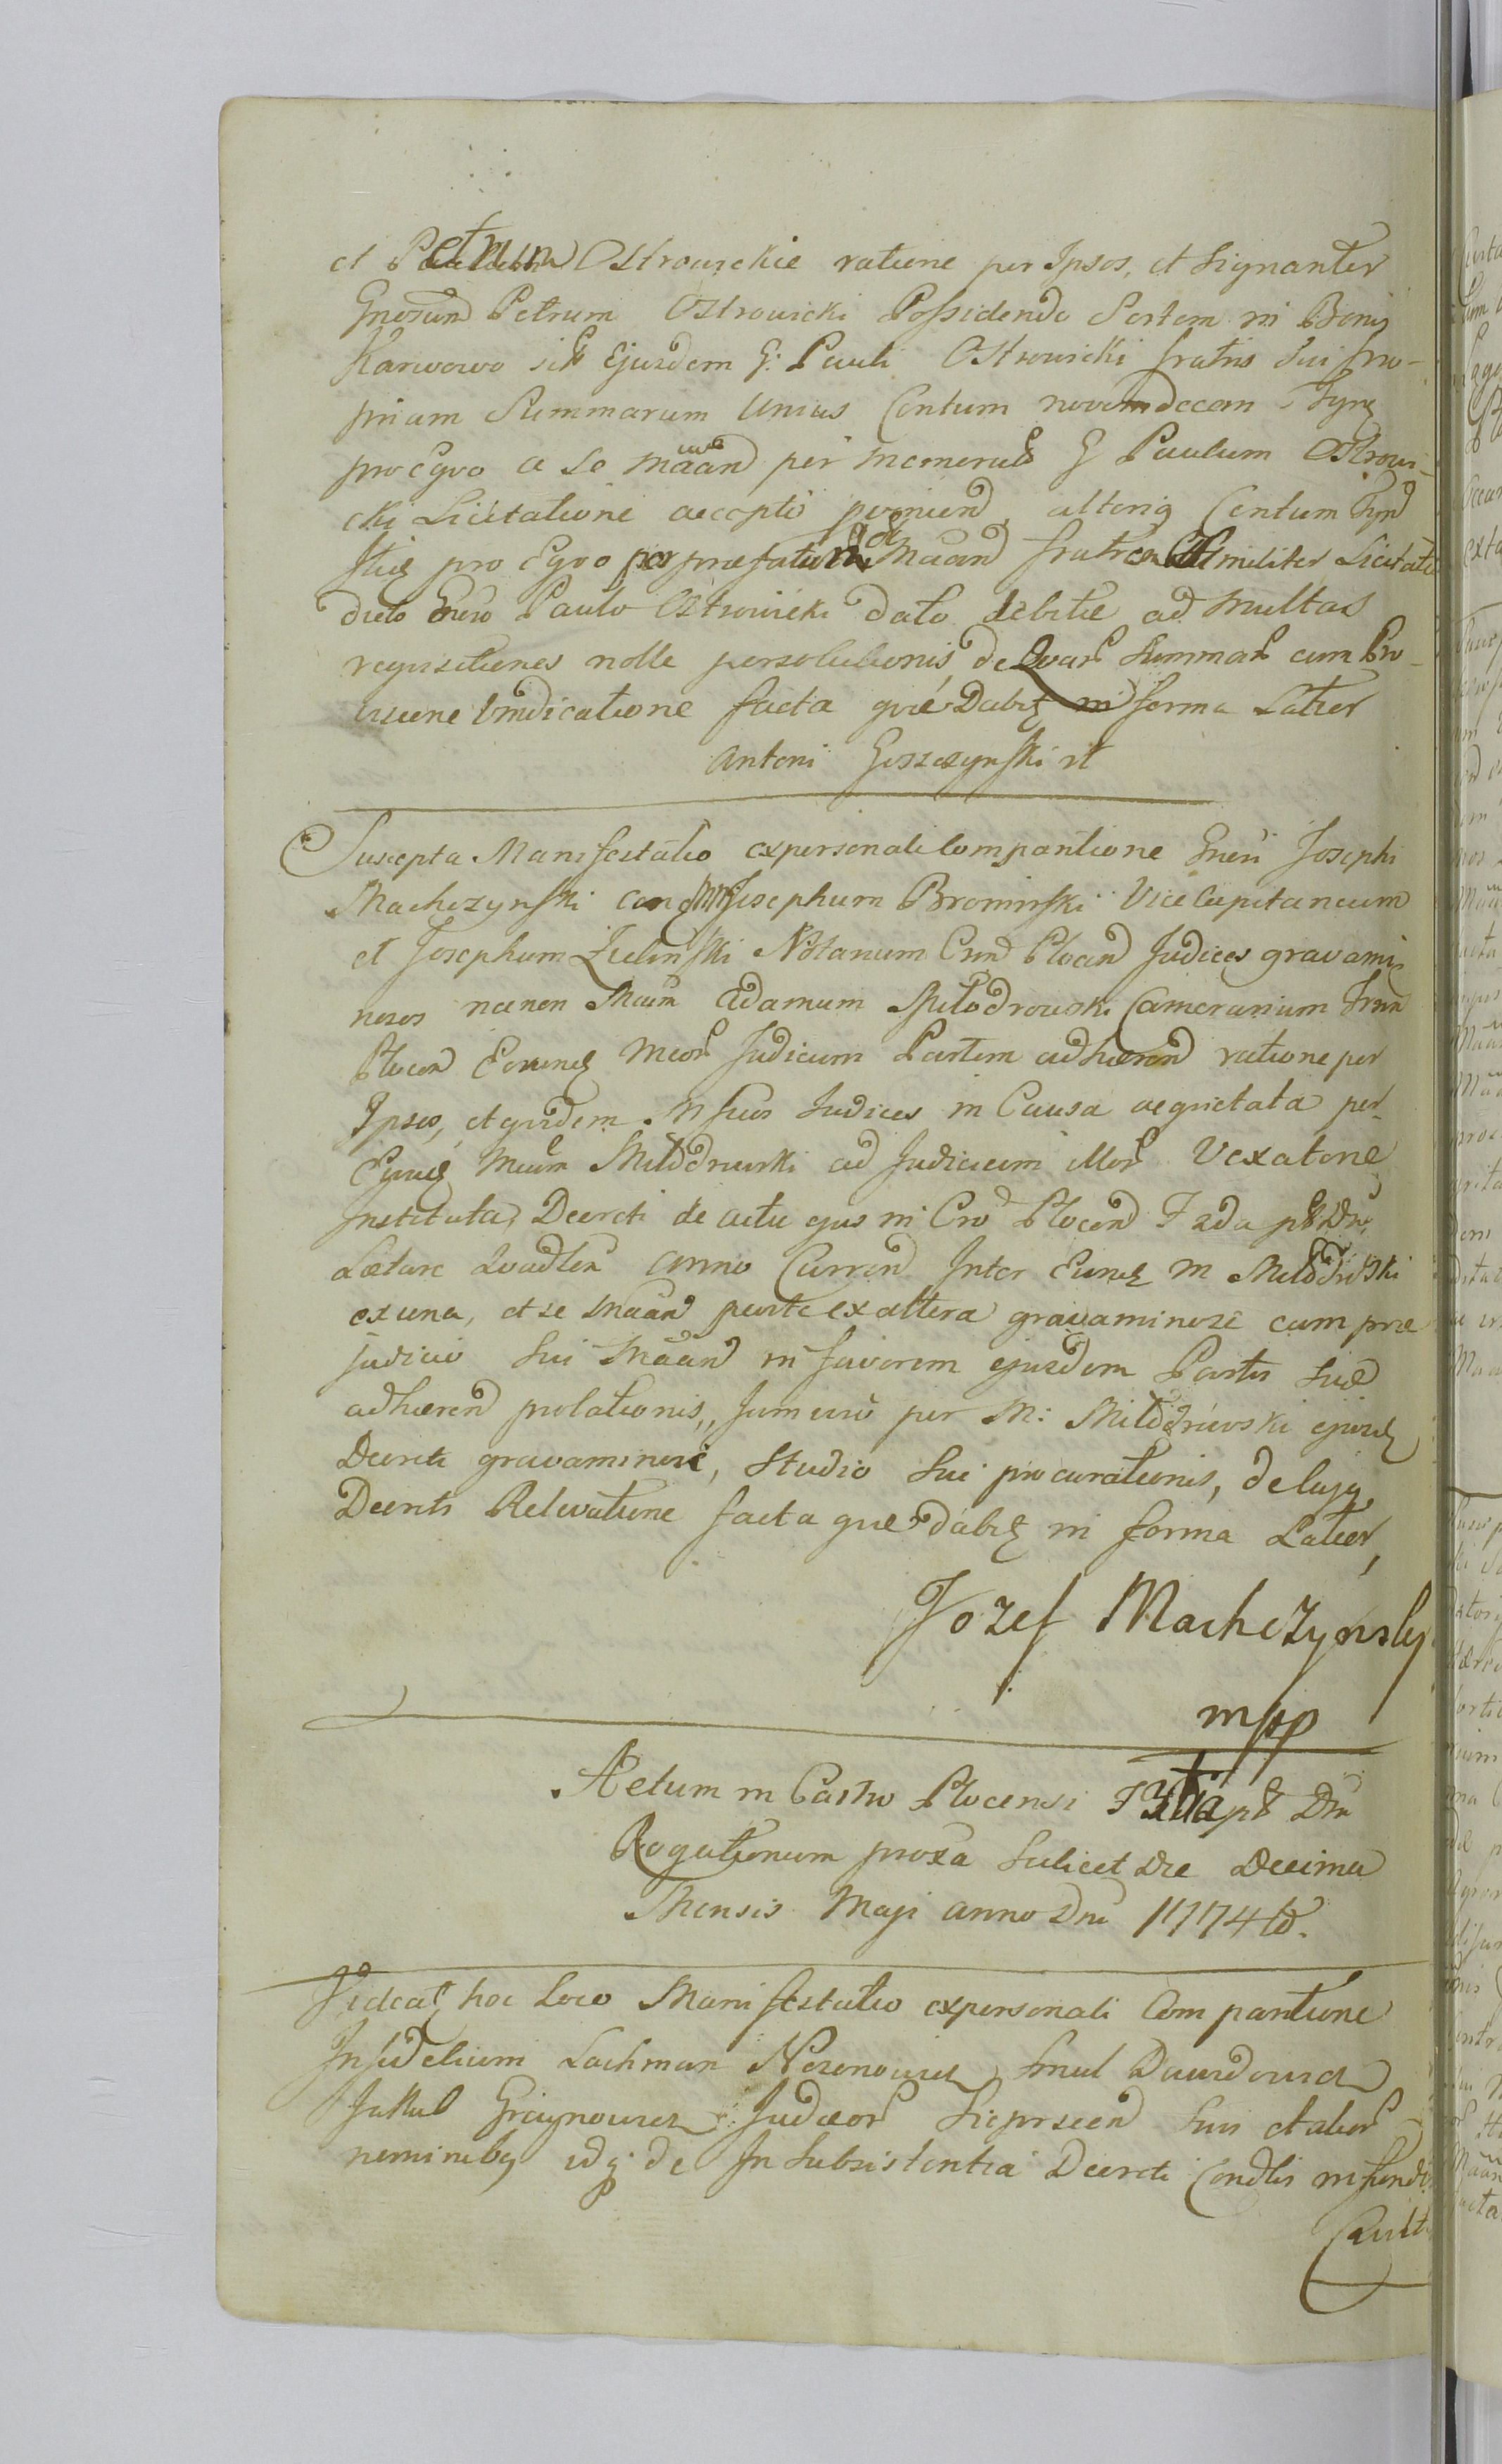 et Petrum Ostrowskie ratione per Ipsos, et Signanter
Gnosum Petrum Ostrowicki Possidendo Sortem in Bonis
Karwowo sitt Ejusdem G: Pauli Ostrowicki fratris Sui pro-
priam Summarum Unius Centum novemdecem Tynf
pro Eqvo a se Maan per memorat G Paulum Ostrowi-
cki Licitatione accepto provnien, alterig Centum Tynf
pro Eqvo per præfatum Maan fratrem Similiter Licitato
dicto Gnero Paulo Ostrowicki dato debitæ ad multas
reqvisitiones nolle persolutionis, de Qvar Summar cum Pro-
visione Vindicatione facta qvæ Dabit in forma Latior
Antoni Goszczynski
Suscepta Manifestatio expersonali Comparitione Gneri Josephi
Machczynski Josephum Brominski Vice Capitaneum
et Josephum Zielinski Notarium Plocen Judices gravami-
nosos necnon Adamum Milodrowski Camerarium
Plocen Judicum Partem adhæren ratione per
Ipsos, et qvidem Judices in Causa aeqvietata per
Milodrowski ad Judicium illor Vexatorie
Instituta, Decreti de actu ejus in Plocen F 2da pt Dnc
Lætare Anno Curren Inter M Milodrowski
ex una, et se Maan parte ex altera gravaminose cum præ
judicio Sui Maan in favorem ejusdem Partis Suæ
adhæren prolationis, Jam vero per M: Milodrowski
Decreti gravaminose, Studio Sui procurationis, de cujq
Decreti Relevatione facta quæ dabit in forma Latior,
Jozef Machczynsky
mpp
Actum in Castro Plocensi F 3tia pt Dm
Rogationum proxa Scilicet Die Decima
Mensis Maji anno Dni 1774to.
Videat hoc Loco Manifestatio expersonali Comparitione
Infidelium Lachman Dawidowicz
Jakub Judæor Sieprscen Suis et alior
nominibq idq de In Subsistentia Decreti